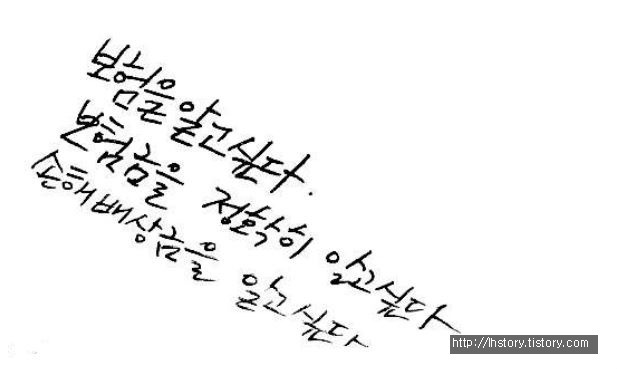 보험을 알고싶다.
보험금을 정확히 알고싶다
손해배상금을 알고싶다
http://lhstory.tistory.com